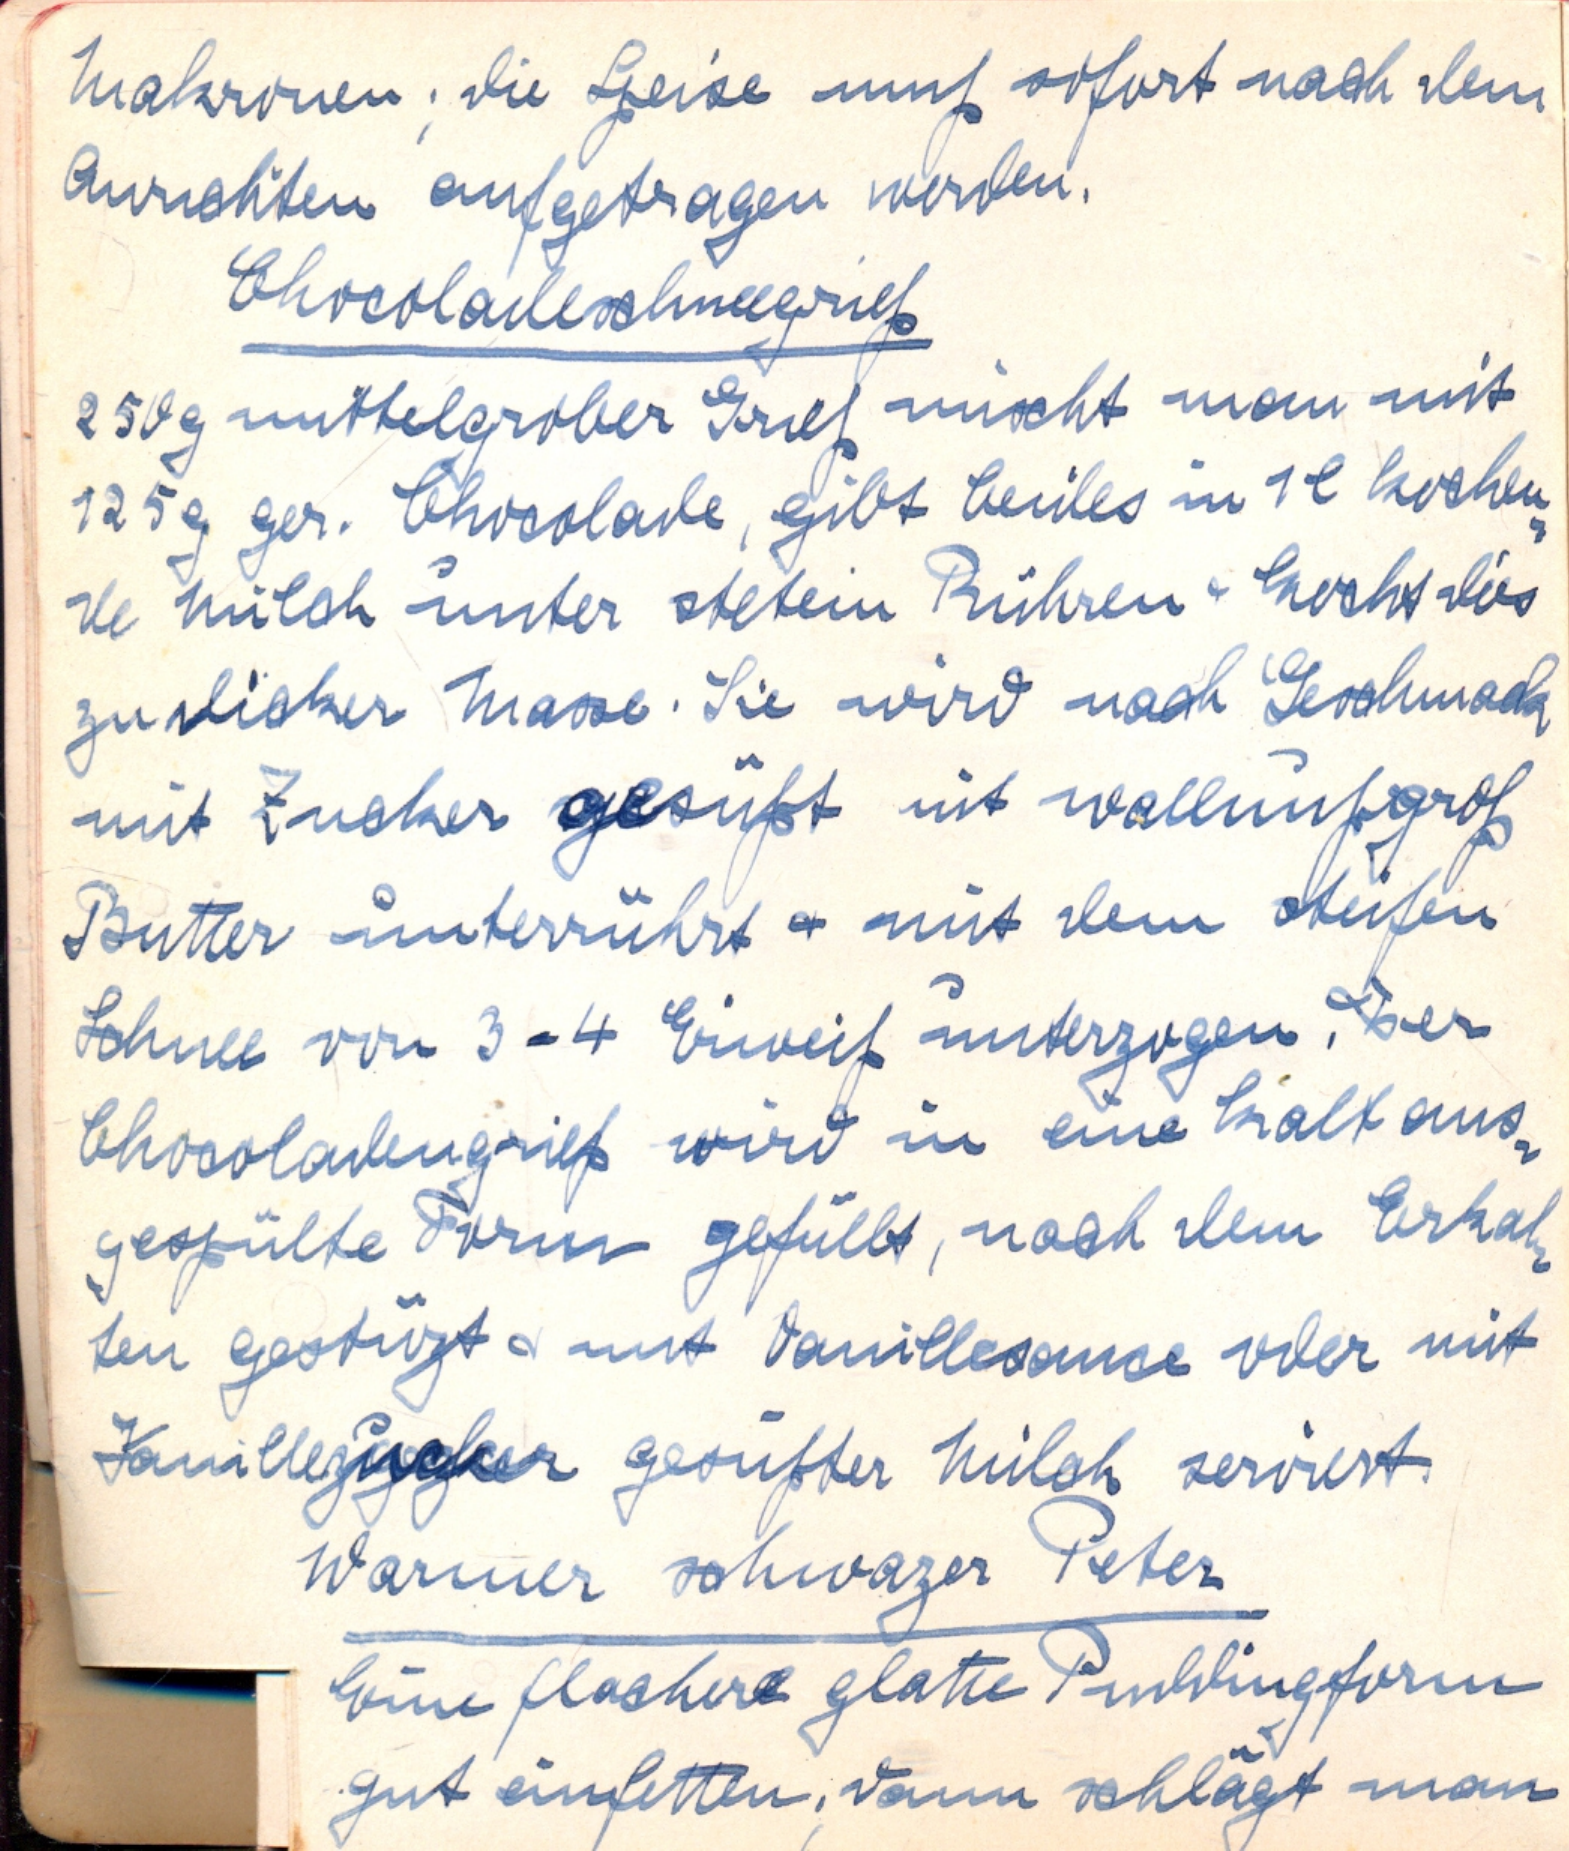 Makronen; die Speise muß sofort nach dem
Anrichten aufgetragen werden.
Chocoladeschneegrieß
250g mittelgrober Grieß mischt man mit
125g ger. Chocolade, gibt beides in 1 l kochen-
de Milch unter stetem Rühren & kocht dies
zu dicker Masse. Sie wird nach Geschmack
mit Zucker gesüßt mit wallnußgroß
Butter unterrührt & mit dem steifen
Schnee von 3-4 Eiweiß unterzogen. Der
Chocoladengrieß wird in eine kalt aus-
gespülte Form gefüllt, nach dem Erkal-
ten gestürzt & mit Vanillesauce oder mit
Vanillezucker gesüßter Milch serviert.
Warmer schwazer Peter
Eine flachere glatte Puddingform
gut einfetten, dann schlägt man